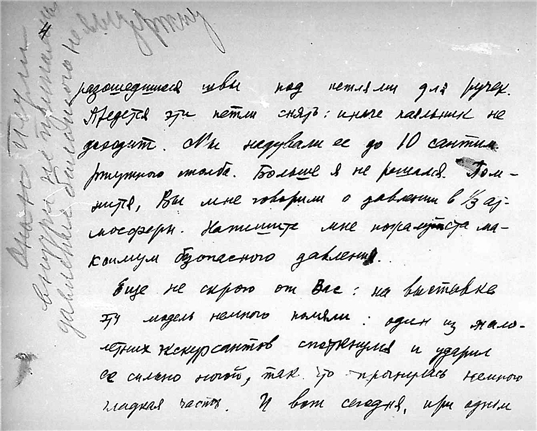 разошедшиеся швы под петлями для ручек.
Придется эти петли снять: иначе паяльник не
доходит. Мы надували ее до 10 сантим.
ртутного столба. Больше я не решался. Пом-
ните, Вы мне говорили о давлении в 1/3 ат-
мосферы. Напишите мне пожалуйста ма-
ксимум безопасного давления.
Еще не скрою от Вас: на выставке
эту модель немного помяли: один из мало-
летних экскурсантов споткнулся и ударил
ее сильно ногой, так что прогнулась немного
гладкая часть. И вот сегодня, при одном
внутри не
давление
не выдержит